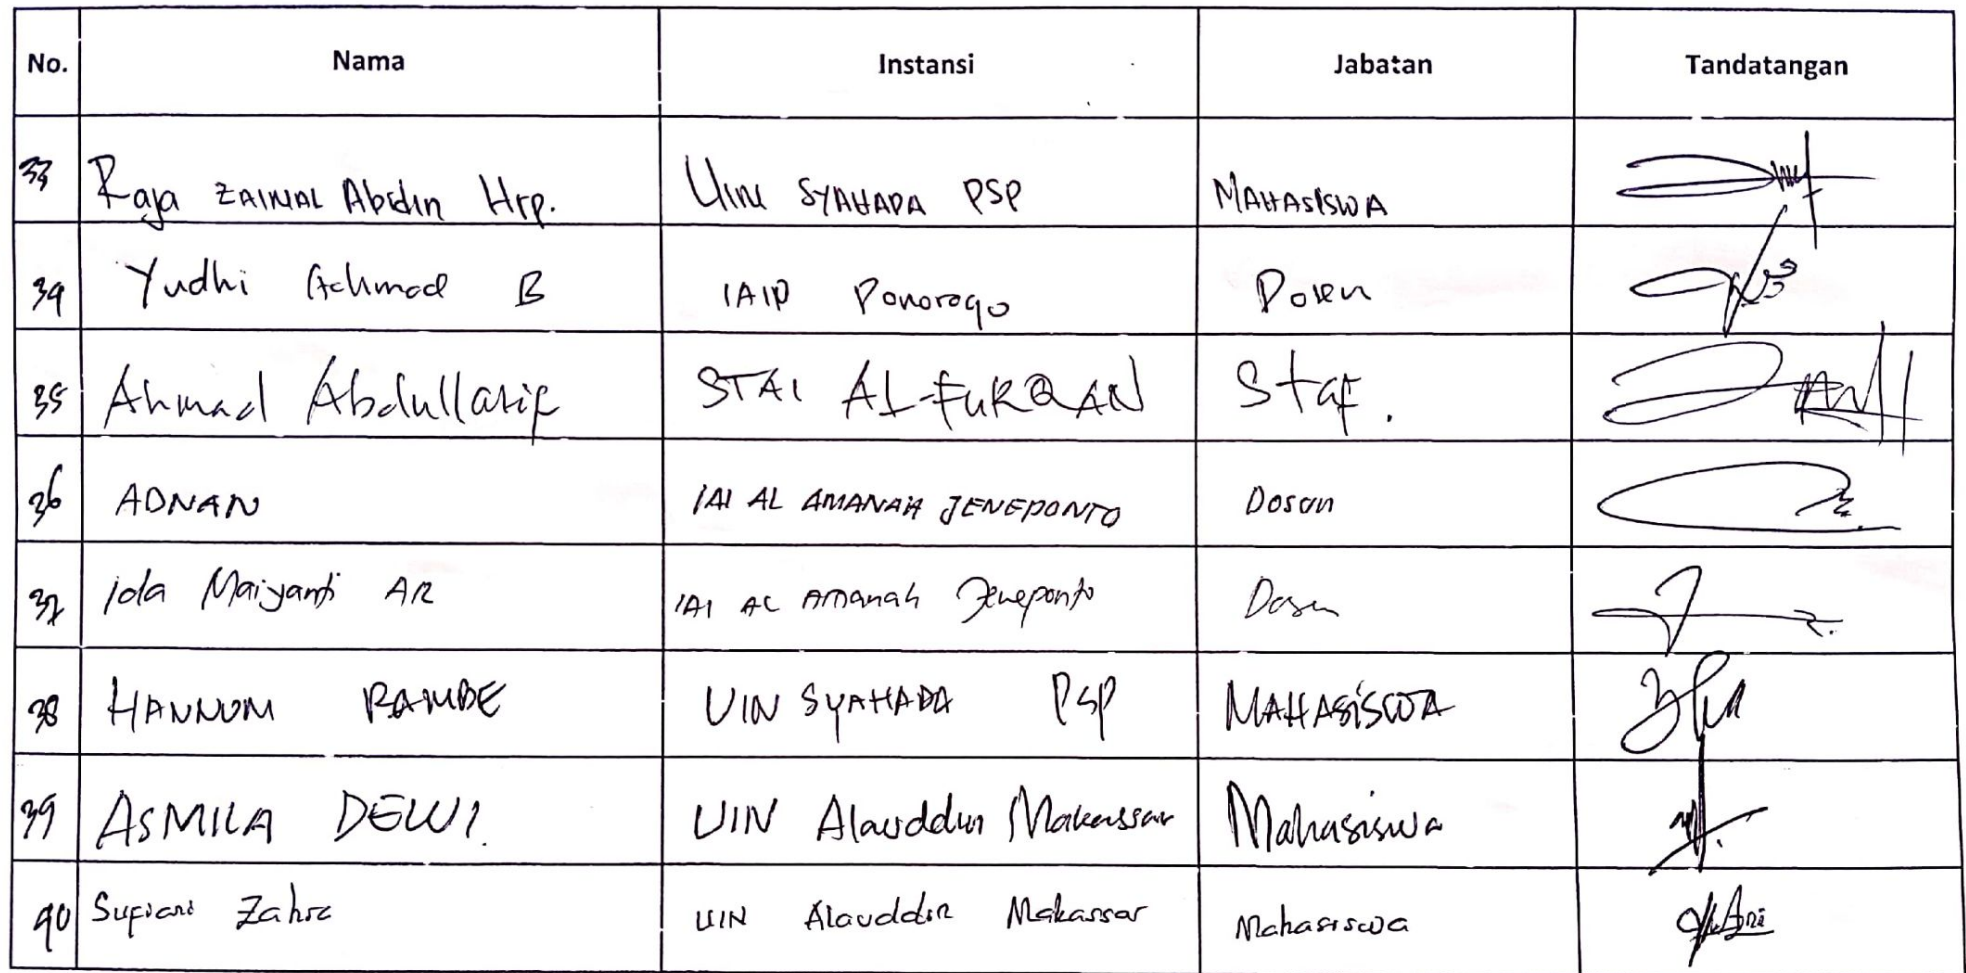 No. Nama Instansi Jabatan Tandatangan
33 Raja ZAINAL Abidin Hrp. UIN SYAHADA PSP MAHASISWA
34 Yudhi Achmad B IAIP Ponorogo Dosen
35 Ahmad Abdullatif STAI AL-FURQAN Staf.
36 ADNAN IAI AL AMANAH JENEPONTO Dosen
37 Ida Maiyanti AR IAI AL Amanah Jeneponto Dosen
38 HANNUM RAMBE UIN SYAHADA PSP MAHASISWA
39 ASMILA DEWI. UIN Alauddin Makassar Mahasiswa
40 Supiani Zahra UIN Alauddin Makassar Mahasiswa